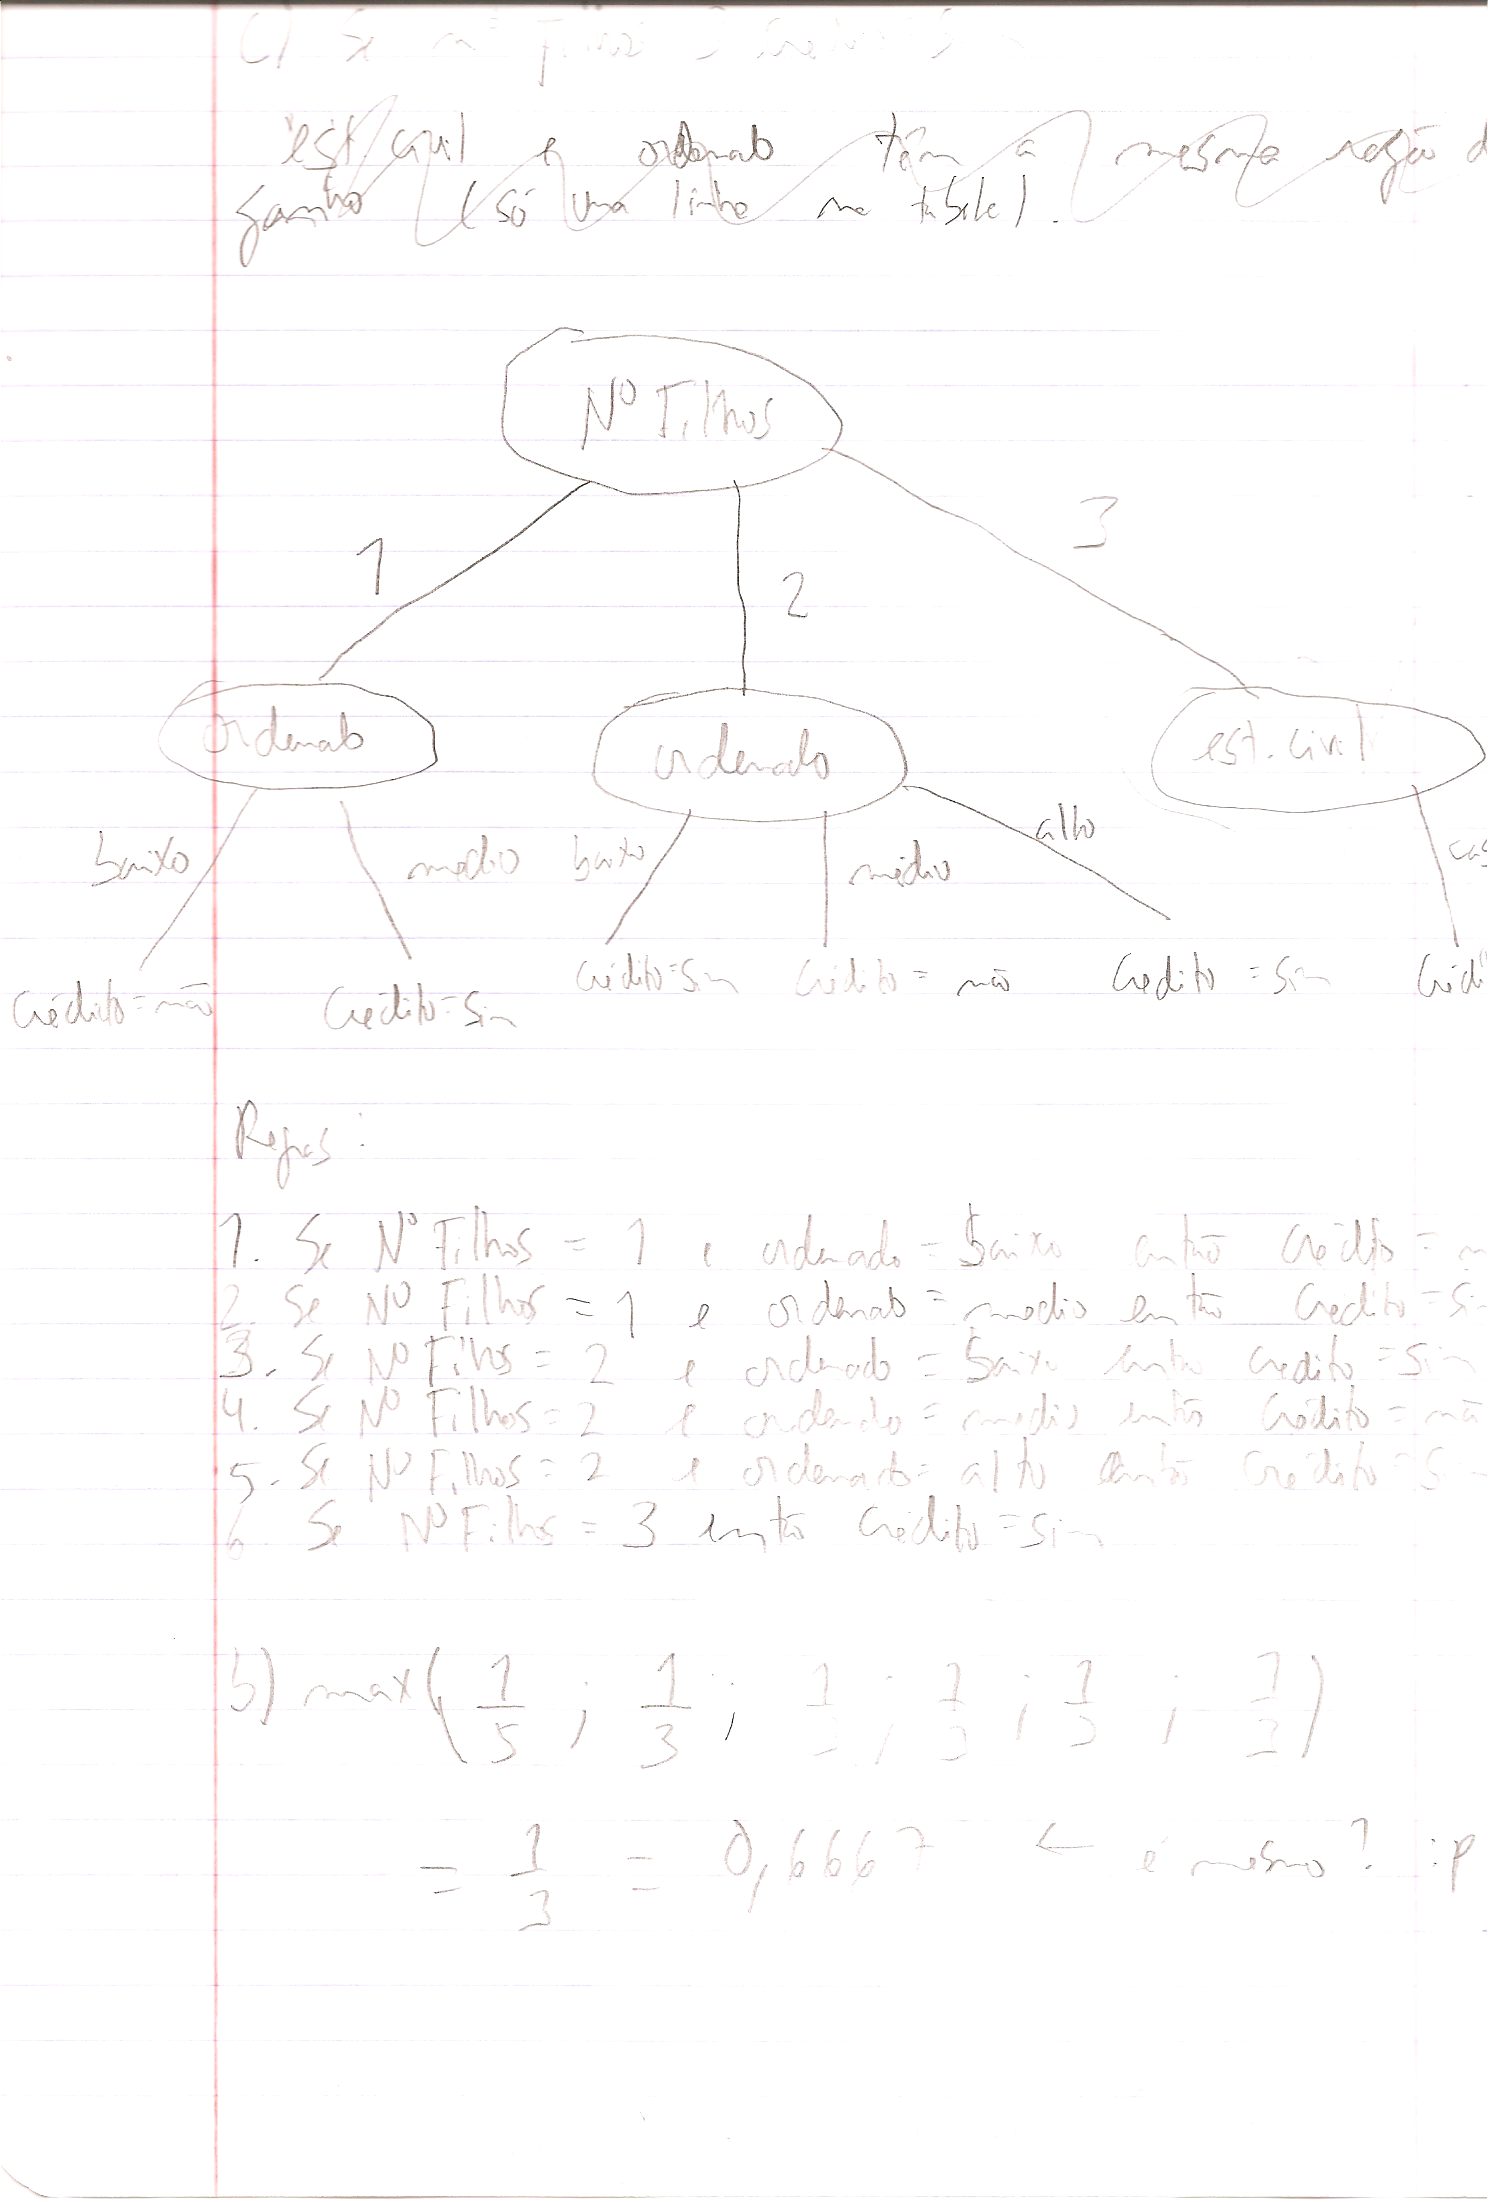 c) Se nº Filhos
est civil e ordenado têm a mesma razão d
ganho (só uma linha na tabela).
Nº Filhos
1
2
3
ordenado
ordenado
est. civil
baixo
medio
baixo
médio
alto
cas
Crédito = não
Crédito = Sim
Crédito = Sim
Crédito = não
Credito = Sim
Crédi
Regras:
1. Se Nº Filhos = 1 e ordenado = baixo então Crédito = n
2. Se Nº Filhos = 1 e ordenado = medio então Crédito = Si
3. Se Nº Filhos = 2 e ordenado = baixo então Credito = Sim
4. Se Nº Filhos = 2 e ordenado = medio então Crédito = nã
5. Se Nº Filhos = 2 e ordenado = alto então Crédito = Si
6. Se Nº Filhos = 3 então Crédito = Sim
b) max( 1/5 ; 1/3 ; 1/3 ; 1/3 ; 1/3 ; 1/3 )
= 1/3 = 0,6667 ← é mesmo? :p